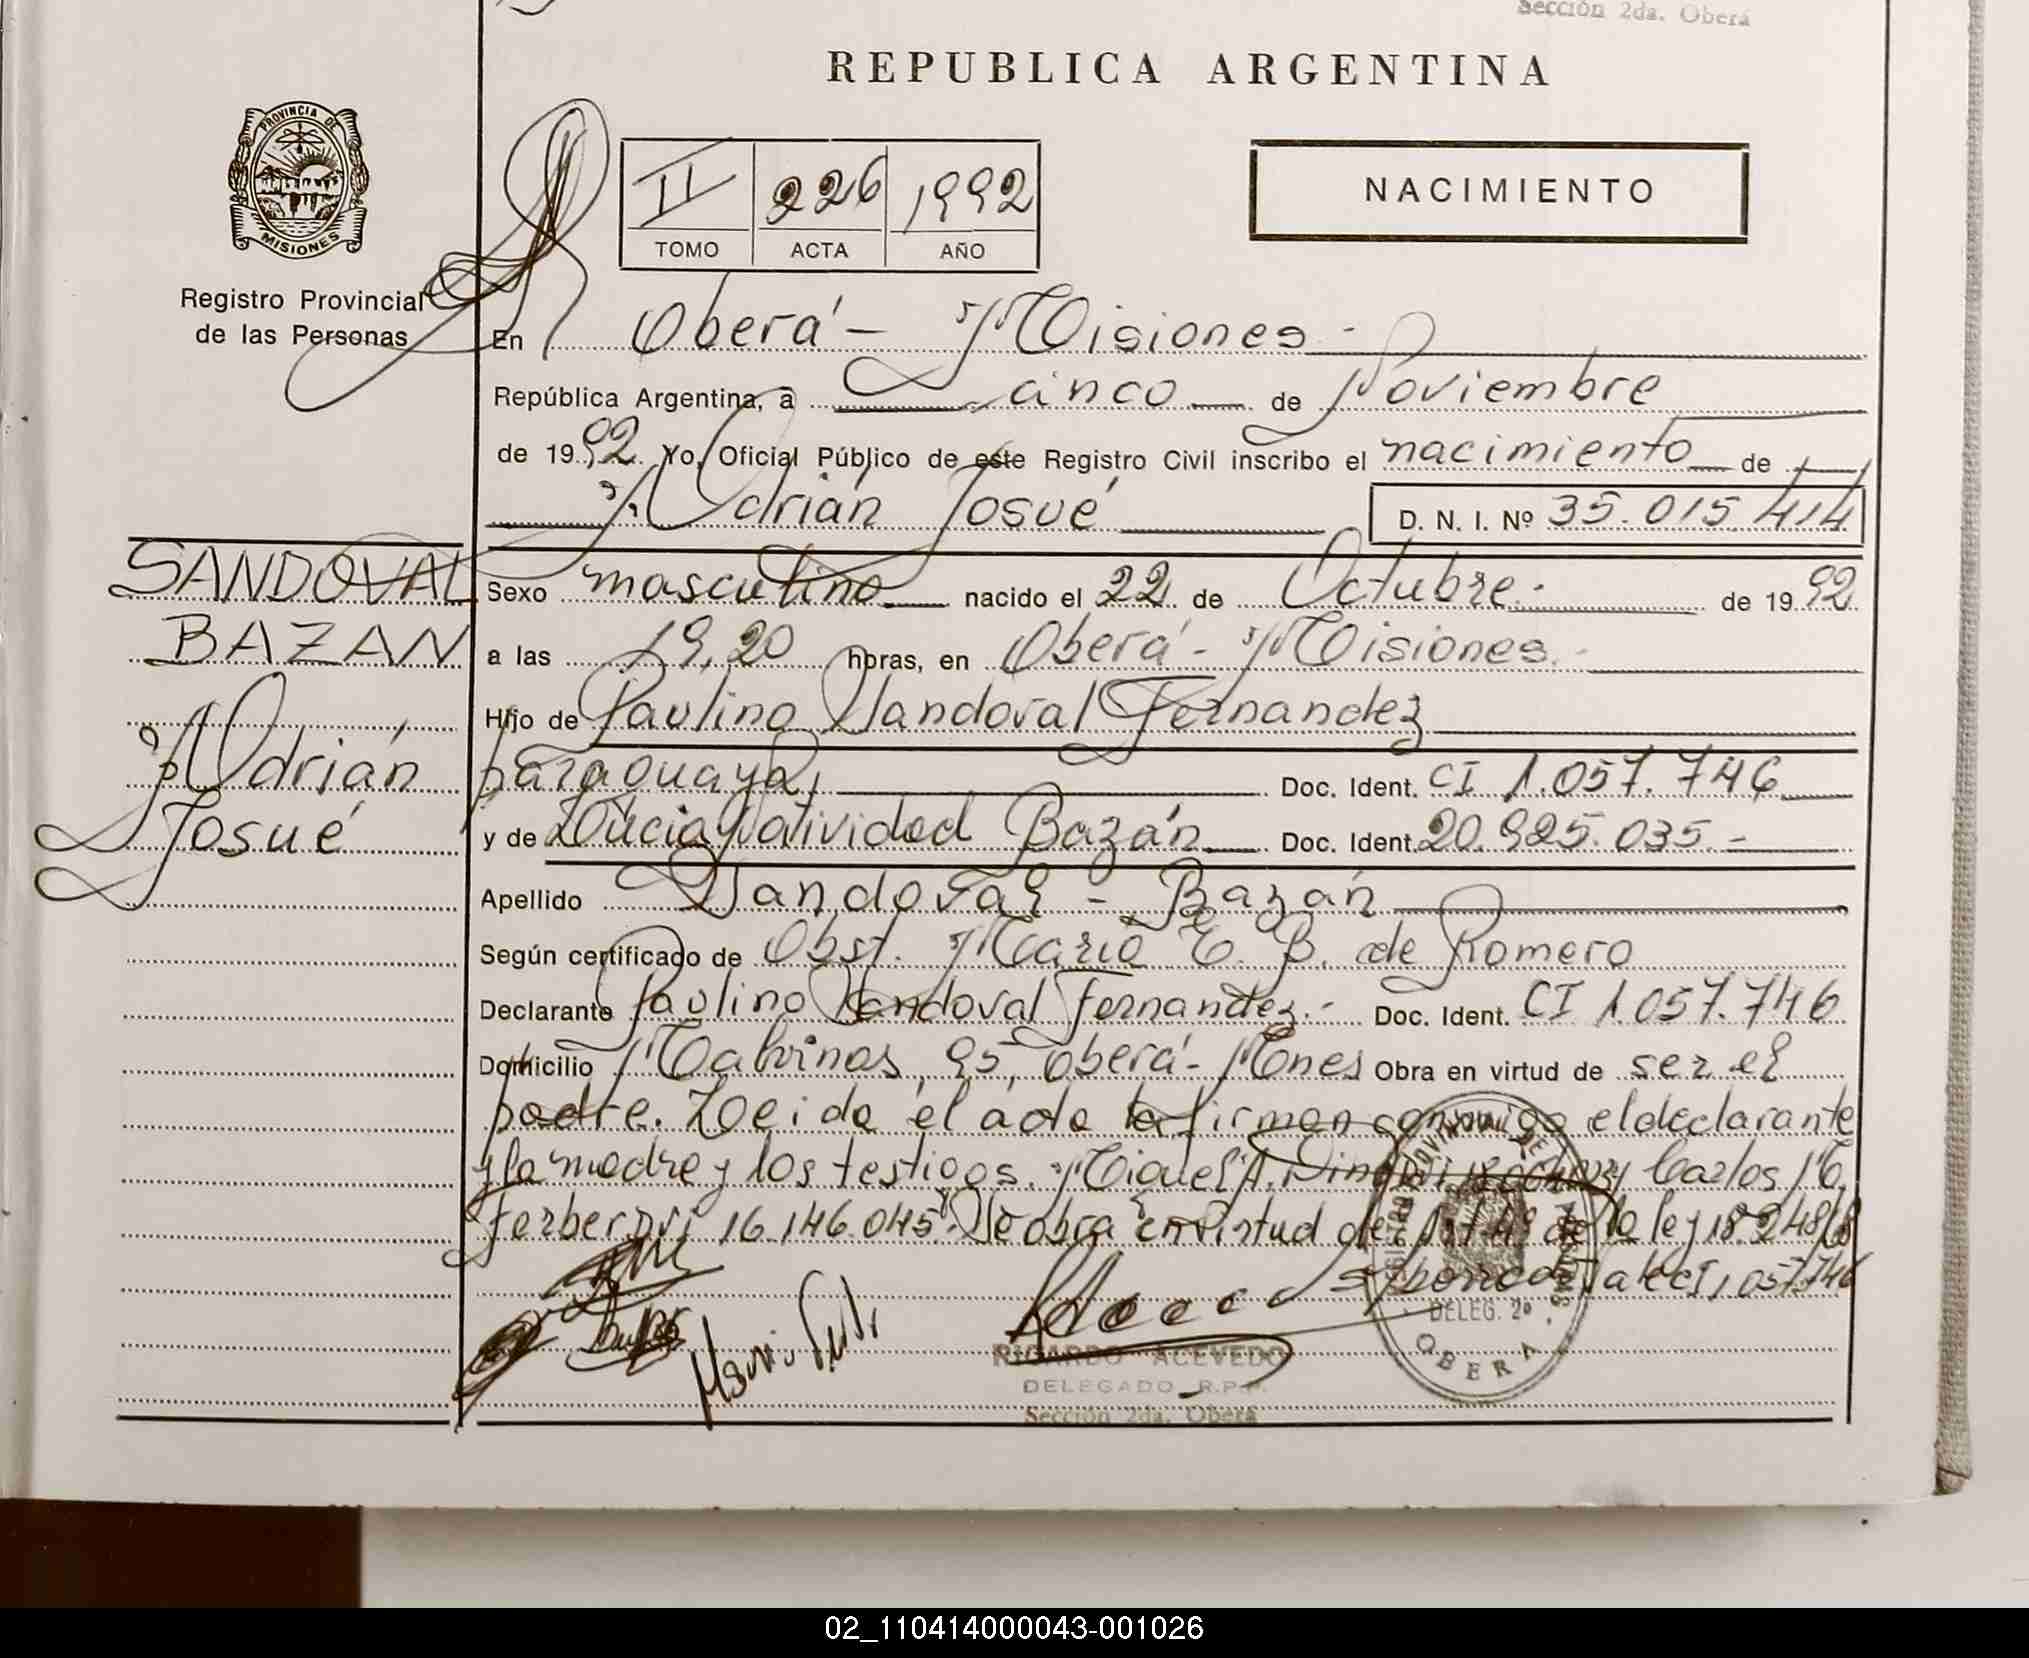 Sección 2da. Oberá
REPUBLICA ARGENTINA
PROVINCIA DE
MISIONES
Registro Provincial
de las Personas
II 226 1992
TOMO ACTA AÑO
NACIMIENTO
En Oberá - Misiones -
República Argentina, a cinco de Noviembre
de 1992 Yo, Oficial Público de este Registro Civil inscribo el nacimiento de
Adrián Josué
D. N. I. Nº 35.015.414
SANDOVAL
BAZAN
Adrián
Josué
Sexo masculino nacido el 22 de Octubre.- de 1992
a las 19,20 horas, en Oberá - Misiones.-
Hijo de Paulino Sandoval Fernandez
paraguaya, Doc. Ident. CI 1.057.746
y de Lucia Natividad Bazán Doc. Ident. 20.925.035.-
Apellido Sandoval - Bazán
Según certificado de Obst. María E. B. de Romero
Declarante Paulino Sandoval Fernandez.- Doc. Ident. CI 1.057.746
Domicilio Malvinas, 95, Oberá - Mnes Obra en virtud de ser el
padre. Leida el acta la firman conmigo el declarante
y la madre y los testigos. Miguel A. y Carlos M.
Ferber DNI 16.146.045. Se obra en virtud del Art 49 de la ley 18.248/
CI 1.057.746
DELEG. 2a
OBERA
RICARDO ACEVEDO
DELEGADO R.P.P.
Sección 2da. Oberá
02_110414000043-001026